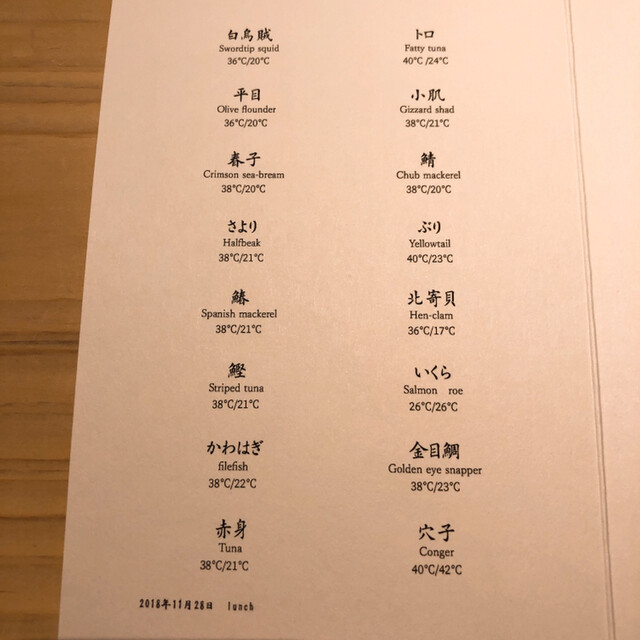 白烏賊
Swordtip squid
36℃/20℃
平目
Olive flounder
36℃/20℃
春子
Crimson sea-bream
38℃/20℃
さより
Halfbeak
38℃/21℃
鰆
Spanish mackerel
38℃/21℃
鰹
Striped tuna
38℃/21℃
かわはぎ
filefish
38℃/22℃
赤身
Tuna
38℃/21℃
トロ
Fatty tuna
40℃ /24℃
小肌
Gizzard shad
38℃/21℃
鯖
Chub mackerel
38℃/20℃
ぶり
Yellowtail
40℃/23℃
北寄貝
Hen-clam
36℃/17℃
いくら
Salmon roe
26℃/26℃
金目鯛
Golden eye snapper
38℃/23℃
穴子
Conger
40℃/42℃
2018年11月28日 lunch